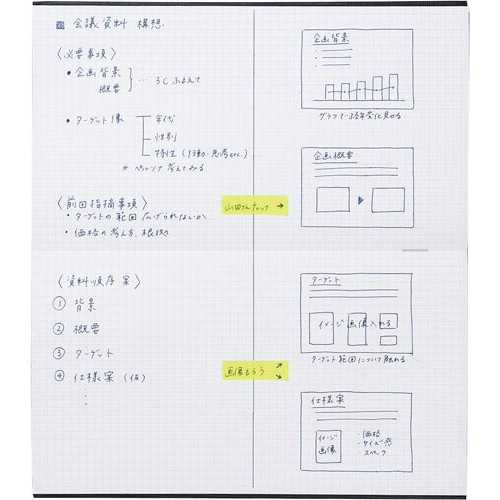 会議資料 構想
〈必要事項〉
• 企画背景
概要
… 3Cふまえて
• ターゲット像
年代
性別
特性(行動・思考etc.)
* ペルソナ考えてみる
〈前回指摘事項〉
・ターゲットの範囲 広げられないか
・価格の考え方、根拠
山田さんチェック →
〈資料順序案〉
① 背景
② 概要
③ ターゲット
④ 仕様案 (仮)
画像もらう
企画背景
グラフで 3ヶ年変化見せる
企画概要
ターゲット
イメージ画像入れる
ターゲット範囲について触れる
仕様案
イメージ
画像
・価格
・サイズ感
・スペック